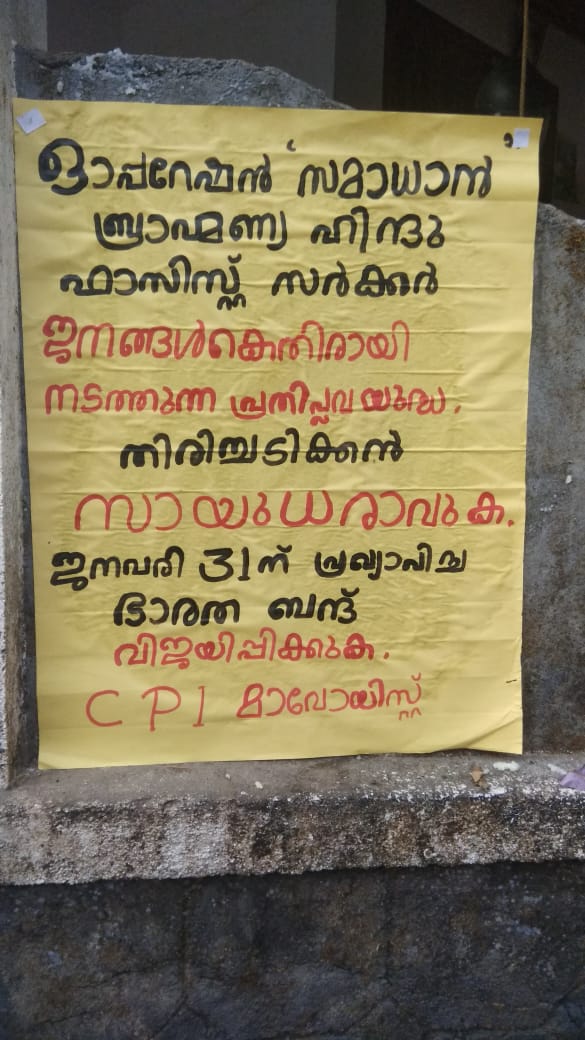 ഓപ്പറേഷൻ 'സമാധാൻ
ബ്രാഹ്മണ്യ ഹിന്ദു
ഫാസിസ്റ്റ് സർക്കർ
ജനങ്ങൾകെതിരായി
നടത്തുന്ന പ്രതിപ്ലവ യുദ്ധം.
തിരിച്ചടിക്കൻ
സായുധരാവുക.
ജനവരി 31ന് പ്രഖ്യാപിച്ച
ഭാരത ബന്ദ്
വിജയിപ്പിക്കുക.
CPI മാവോയിസ്റ്റ്